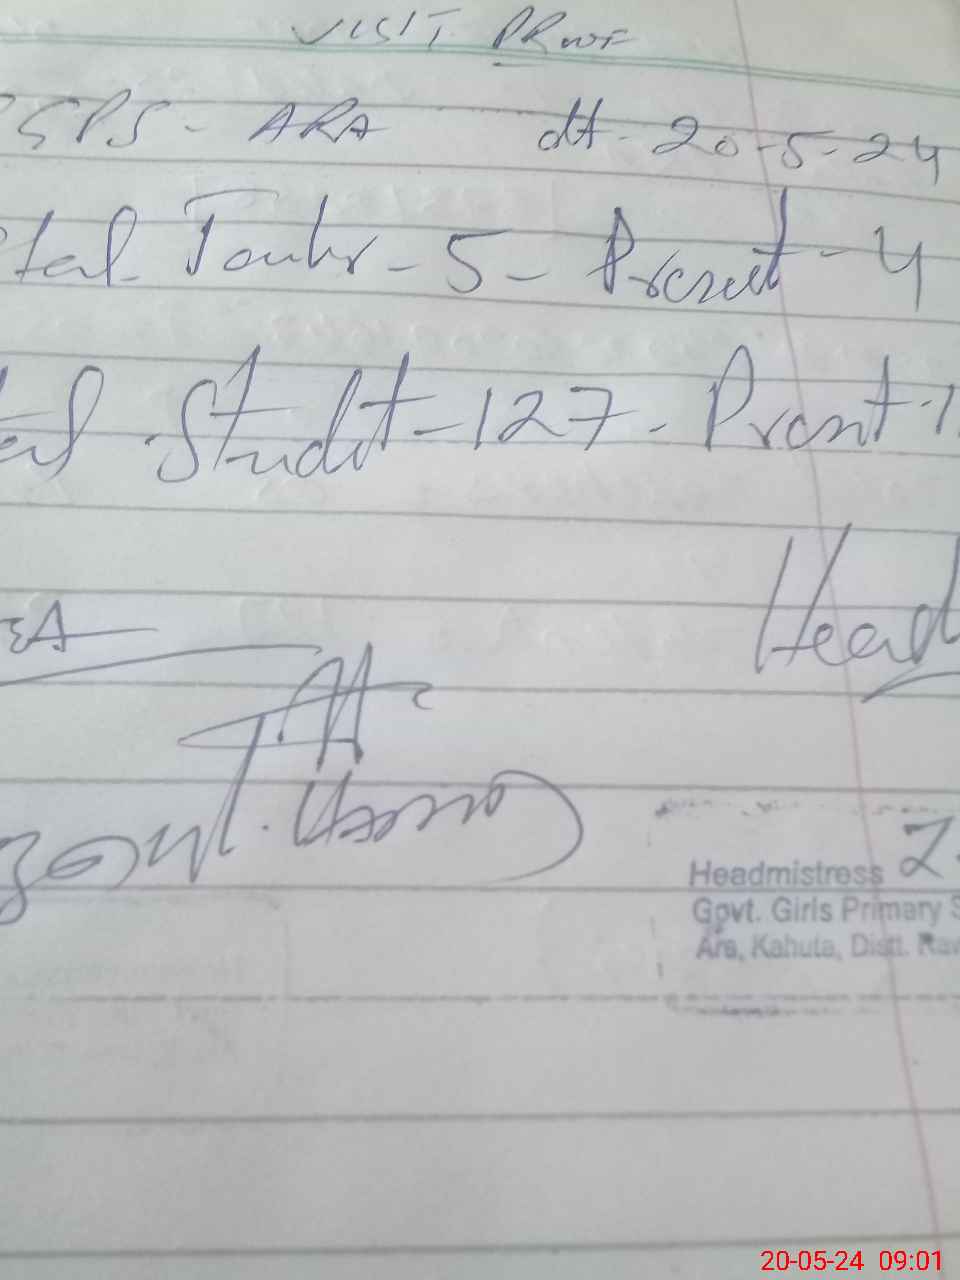 VISIT PROOF
GPS - ARA dt - 20-5-24
tal Teacher - 5 - Present - 4
tal Studt - 127 - Present - 1
EA
Head
Headmistress
Govt. Girls Primary S
Ara, Kahuta, Distt. Raw
20-05-24 09:01